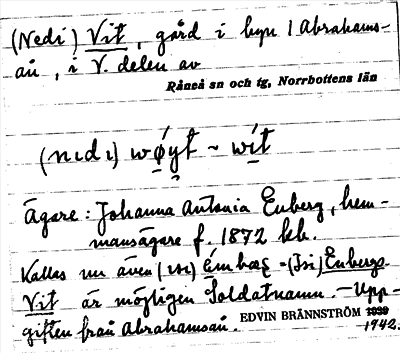 (Nedi) Vit, gård i byn Abrahams-
ån, i V. delen av
Råneå sn och tg, Norrbottens län
(nıdı) wøyt ~ wit
Ägare: Johanna Antonia Enberg, hem-
mansägare f. 1872 bb.
Kallas nu även (ısı) -(Isi) Enbergs
Vit är möjligen Soldatnamn. - Upp-
giften från Abrahamsån. EDVIN BRÄNNSTRÖM 1939
1942.